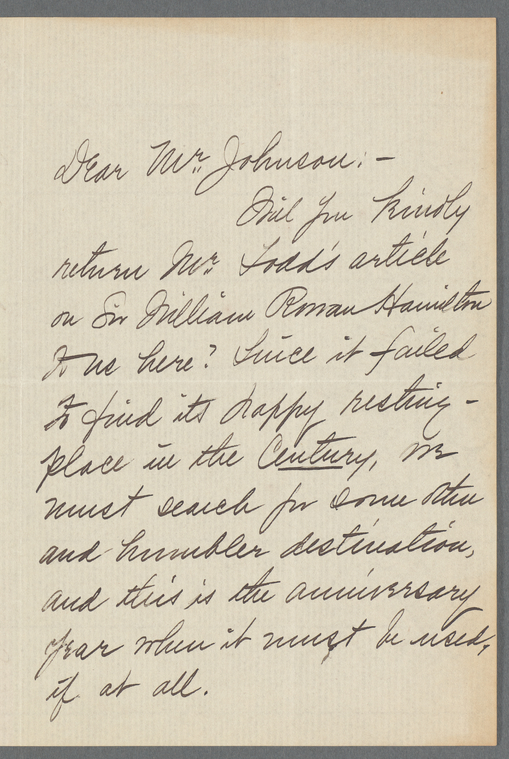 Dear Mr. Johnson:-
Will you kindly
return Mr. Todd's article
on Sir William Rowan Hamilton
to us here? Since it failed
to find its happy resting-
place in the Century, we
must search for some other
and humbler destination,
and this is the anniversary
year when it must be used,
if at all.